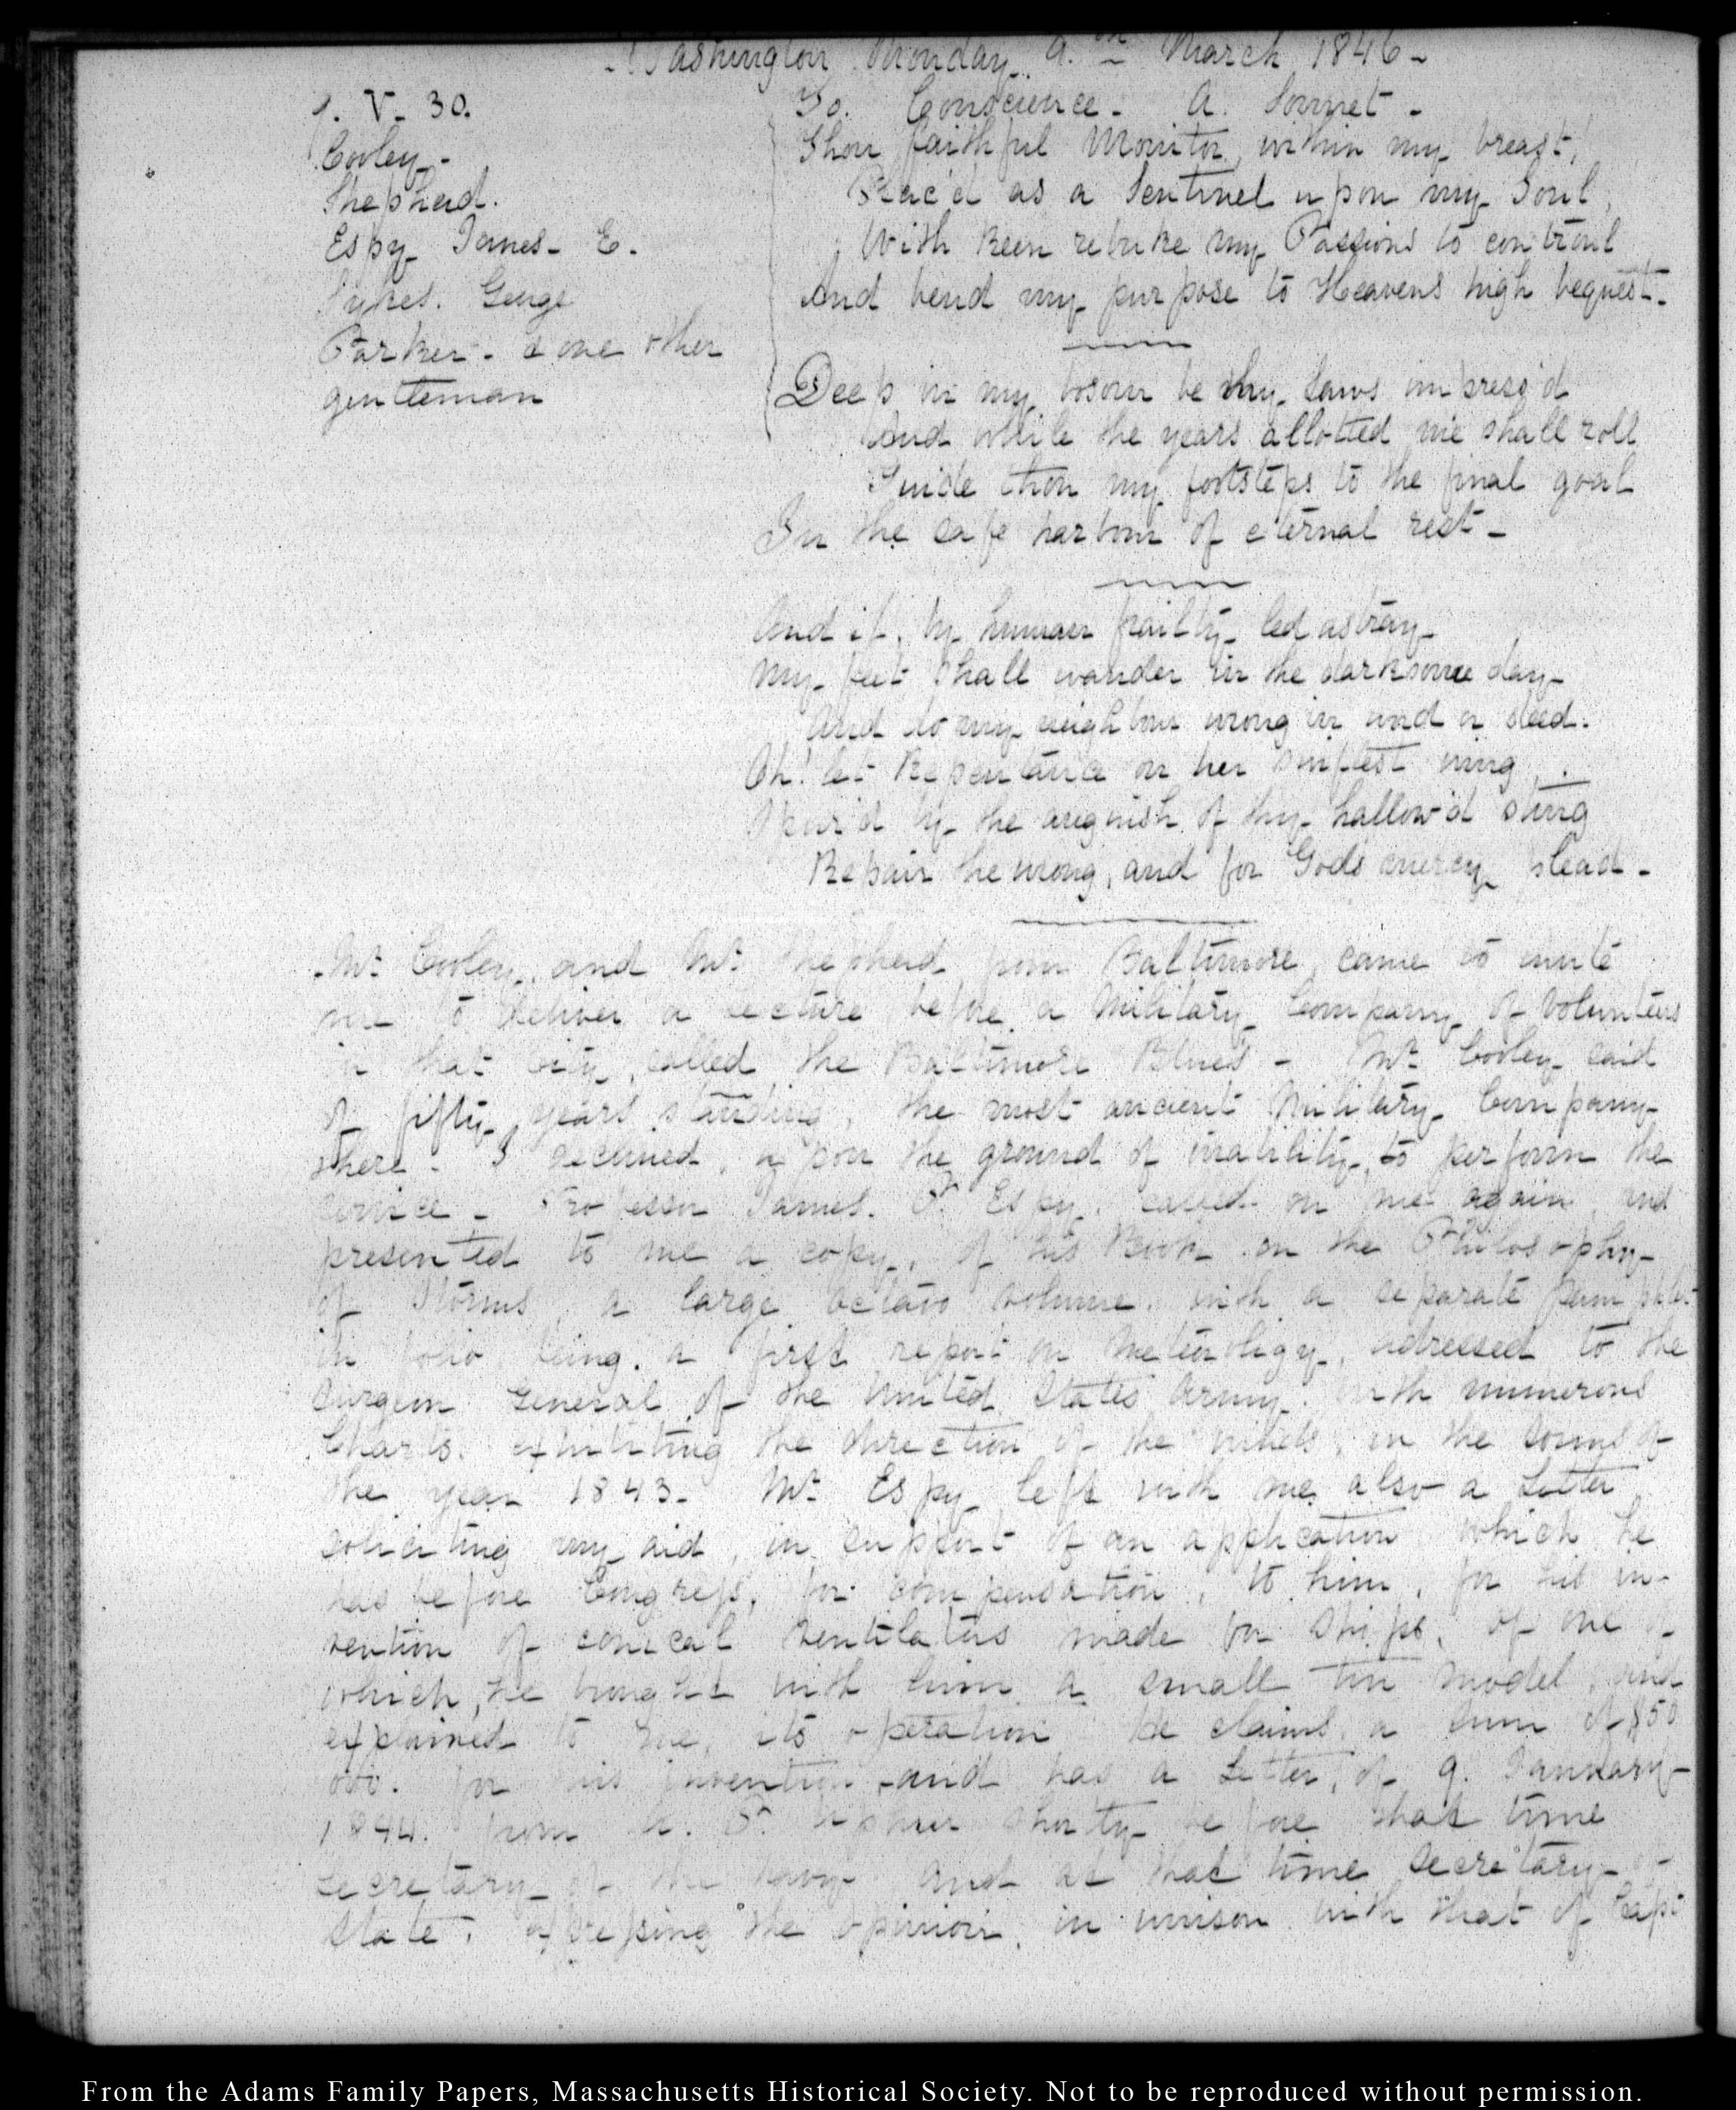 Washington Monday 9.th March 1846-
V- 30.
Cooley-
Shepherd.
Espy James- E.
Sykes. George
Parker- & one other
gentleman
To. Conscience- A. Sonnet-
Thou faithful Monitor, within my breast,
Plac'd as a Sentinel upon my Soul,
With keen rebuke my Passions to controul
And bend my purpose to Heavens high bequest-
Deep in my bosom be thy Laws impress'd
And while the years allotted me shall roll
Guide thou my footsteps to the final goal
In the safe harbour of eternal rest-
And if, by human frailty led astray-
My feet shall wander in the darksome day-
And do my neighbour wrong in word or deed.
Oh! let Repentance on her swiftest wing,
Spur'd by the anguish of thy hallow'd sting
Repair the wrong, and for Gods mercy plead-
Mr. Cooley, and Mr. Shepherd from Baltimore, came to invite
me to deliver a Lecture before a Military Company of Volunteers
in that City, called the Baltimore Blues- Mr. Cooley said
of fifty years standing, the most ancient Military Company
there- I declined, upon the ground of inability, to perform the
service- Professor James. P. Espy. called on me again, and
presented to me a copy, of his Book on the Philosophy-
of Storms, a large octavo volume, with a separate pamphlet
in folio being, a first report on Meteorology, adressed to the
Surgeon General of the United States Army, with numerous
Charts, exhibiting the direction of the winds, in the storms of
the year 1843- Mr. Espy left with me also a Letter
soliciting my aid, in support of an application which he
has before Congress, for compensation, to him, for his in-
vention of conical ventilators made for Ships, of one of
which, he brought with him a small tin model, and
explained to me, its operation he claims a sum of $50
000. for his invention and has a Letter, of 9. January-
1844. from A. P. Upshur shortly before that time
Secretary of the Navy and at that time Secretary of
State, expressing the opinion, in unison with that of Capt
From the Adams Family Papers, Massachusetts Historical Society. Not to be reproduced without permission.